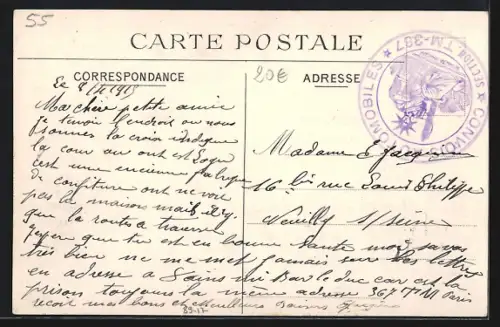 55
CARTE POSTALE
20€
CORRESPONDANCE
ADRESSE
CONVOIS AUTOMOBILES ★ SECTION TM-387 ★
Le 8/11 1915
Ma chère petite amie
je tenvoir lendroit ou nous
sommes la croix indique
la cour ou ont est logé
est une encienne fabrique
de confiture ont ne voie
pas la maison mait il y
que la routes a traverse
que tu est en bonne sante moi sa va
très bien ne me met jamais sur les lettre
en adresse a mi Bar le duc car est la
prison toujours la même adresse 367 TM Paris
recoit mes bons et meilleurs baisers
Madame E
16 bis rue Louis Philippe
Neuilly s/seine
89-17